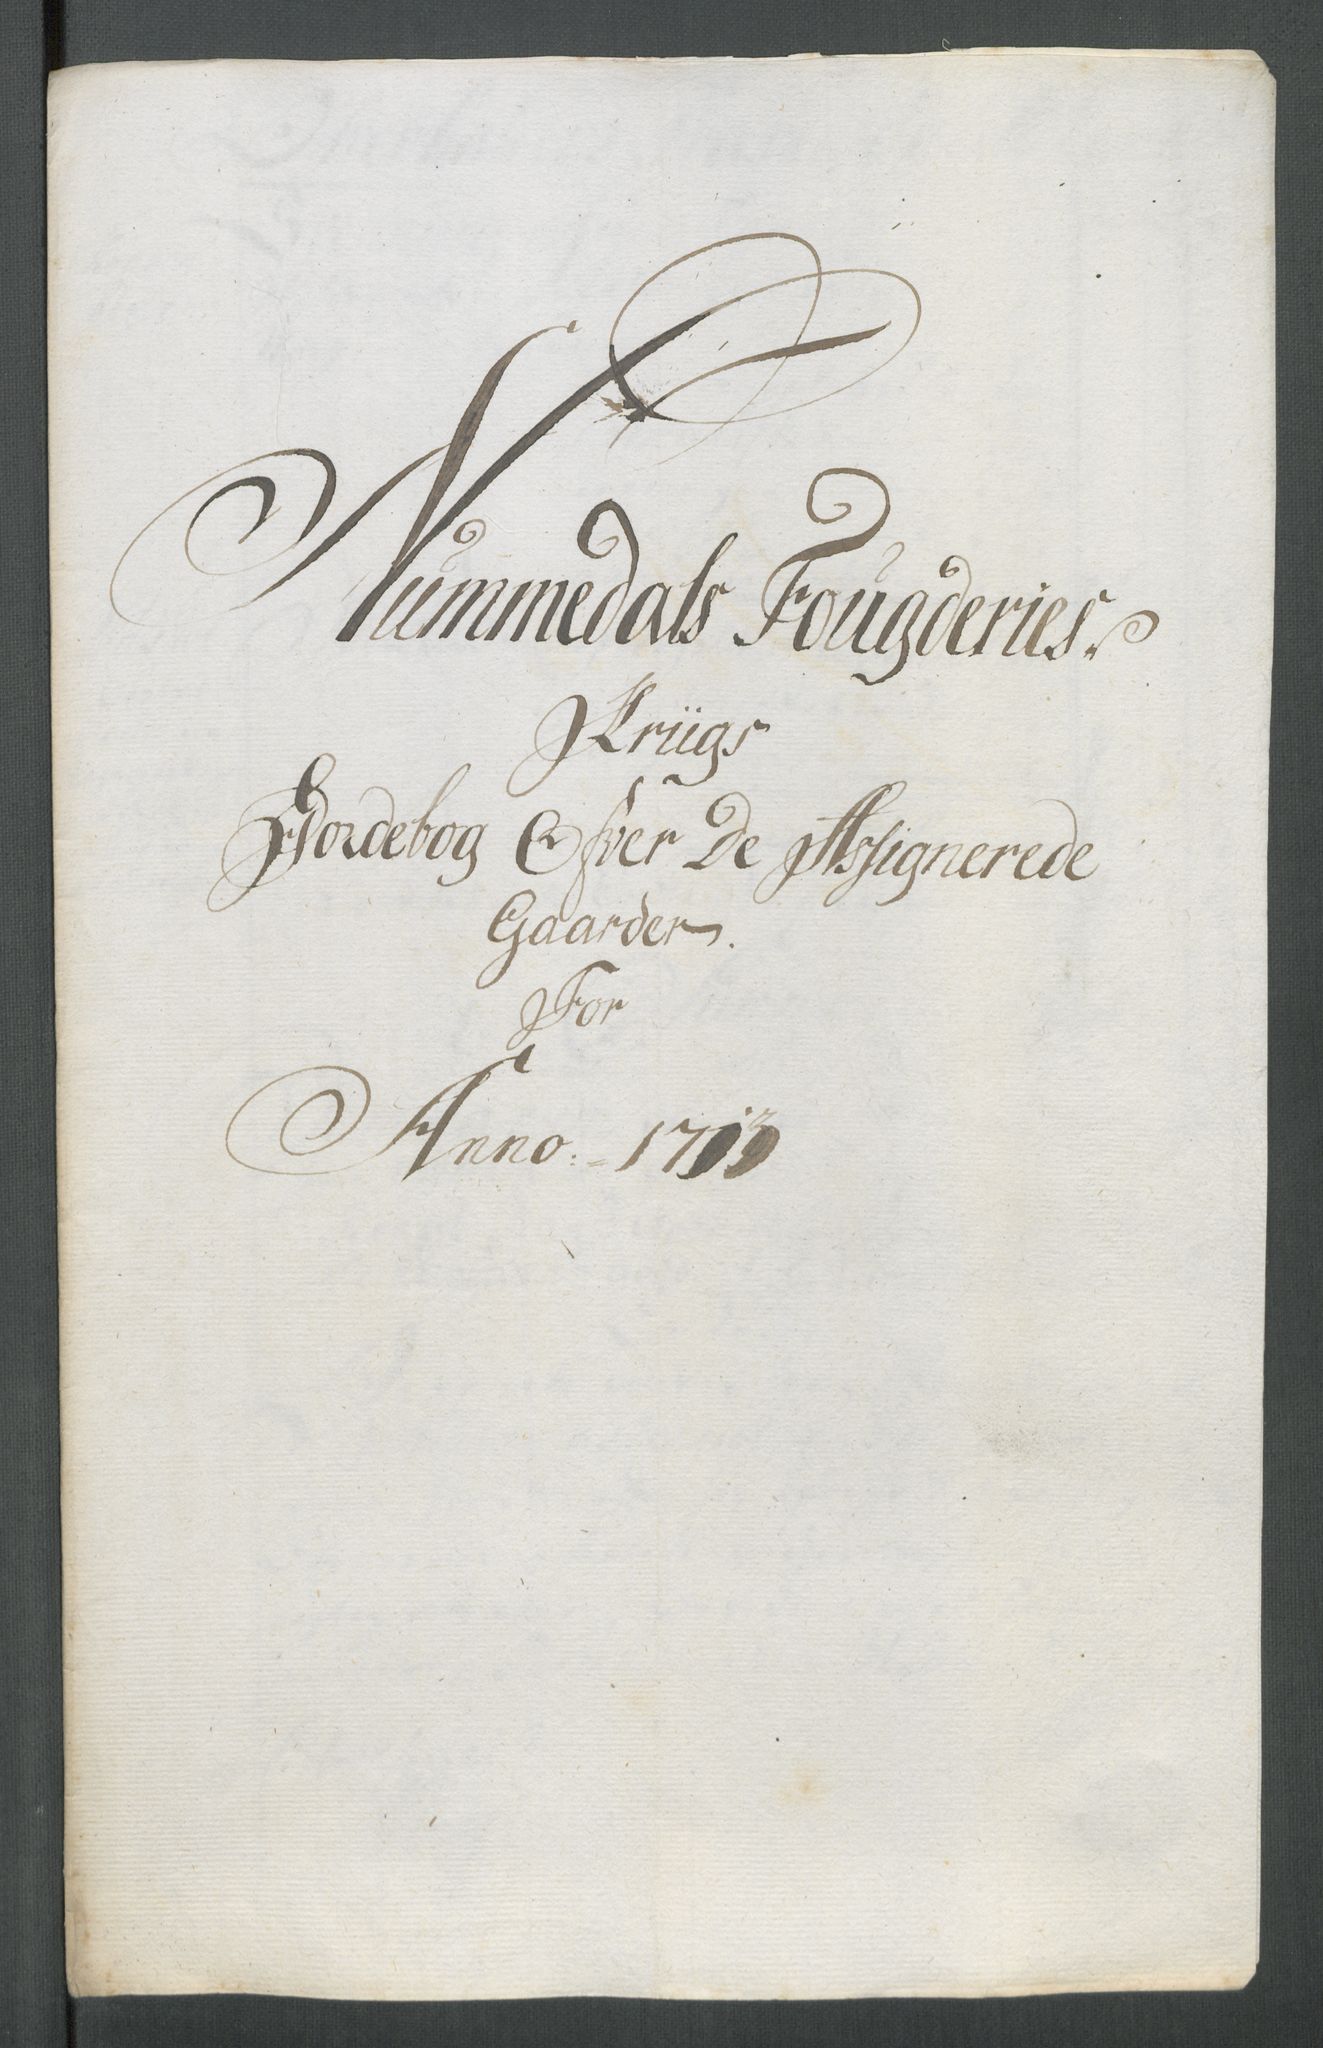 Nummedals Fougderies.
Krügs
Jordebog Ofver De Assignerede
Gaarder.
For
Anno. 1713